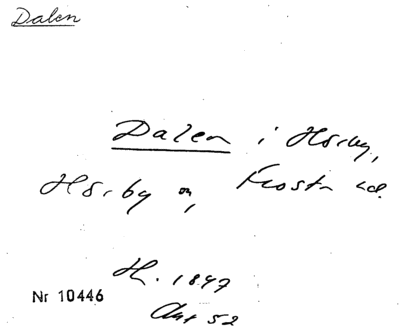 Dalen
Dalen i Hörby,
Hörby sn, Frosta hd.
H. 1847
Nr 10446
Akt 52